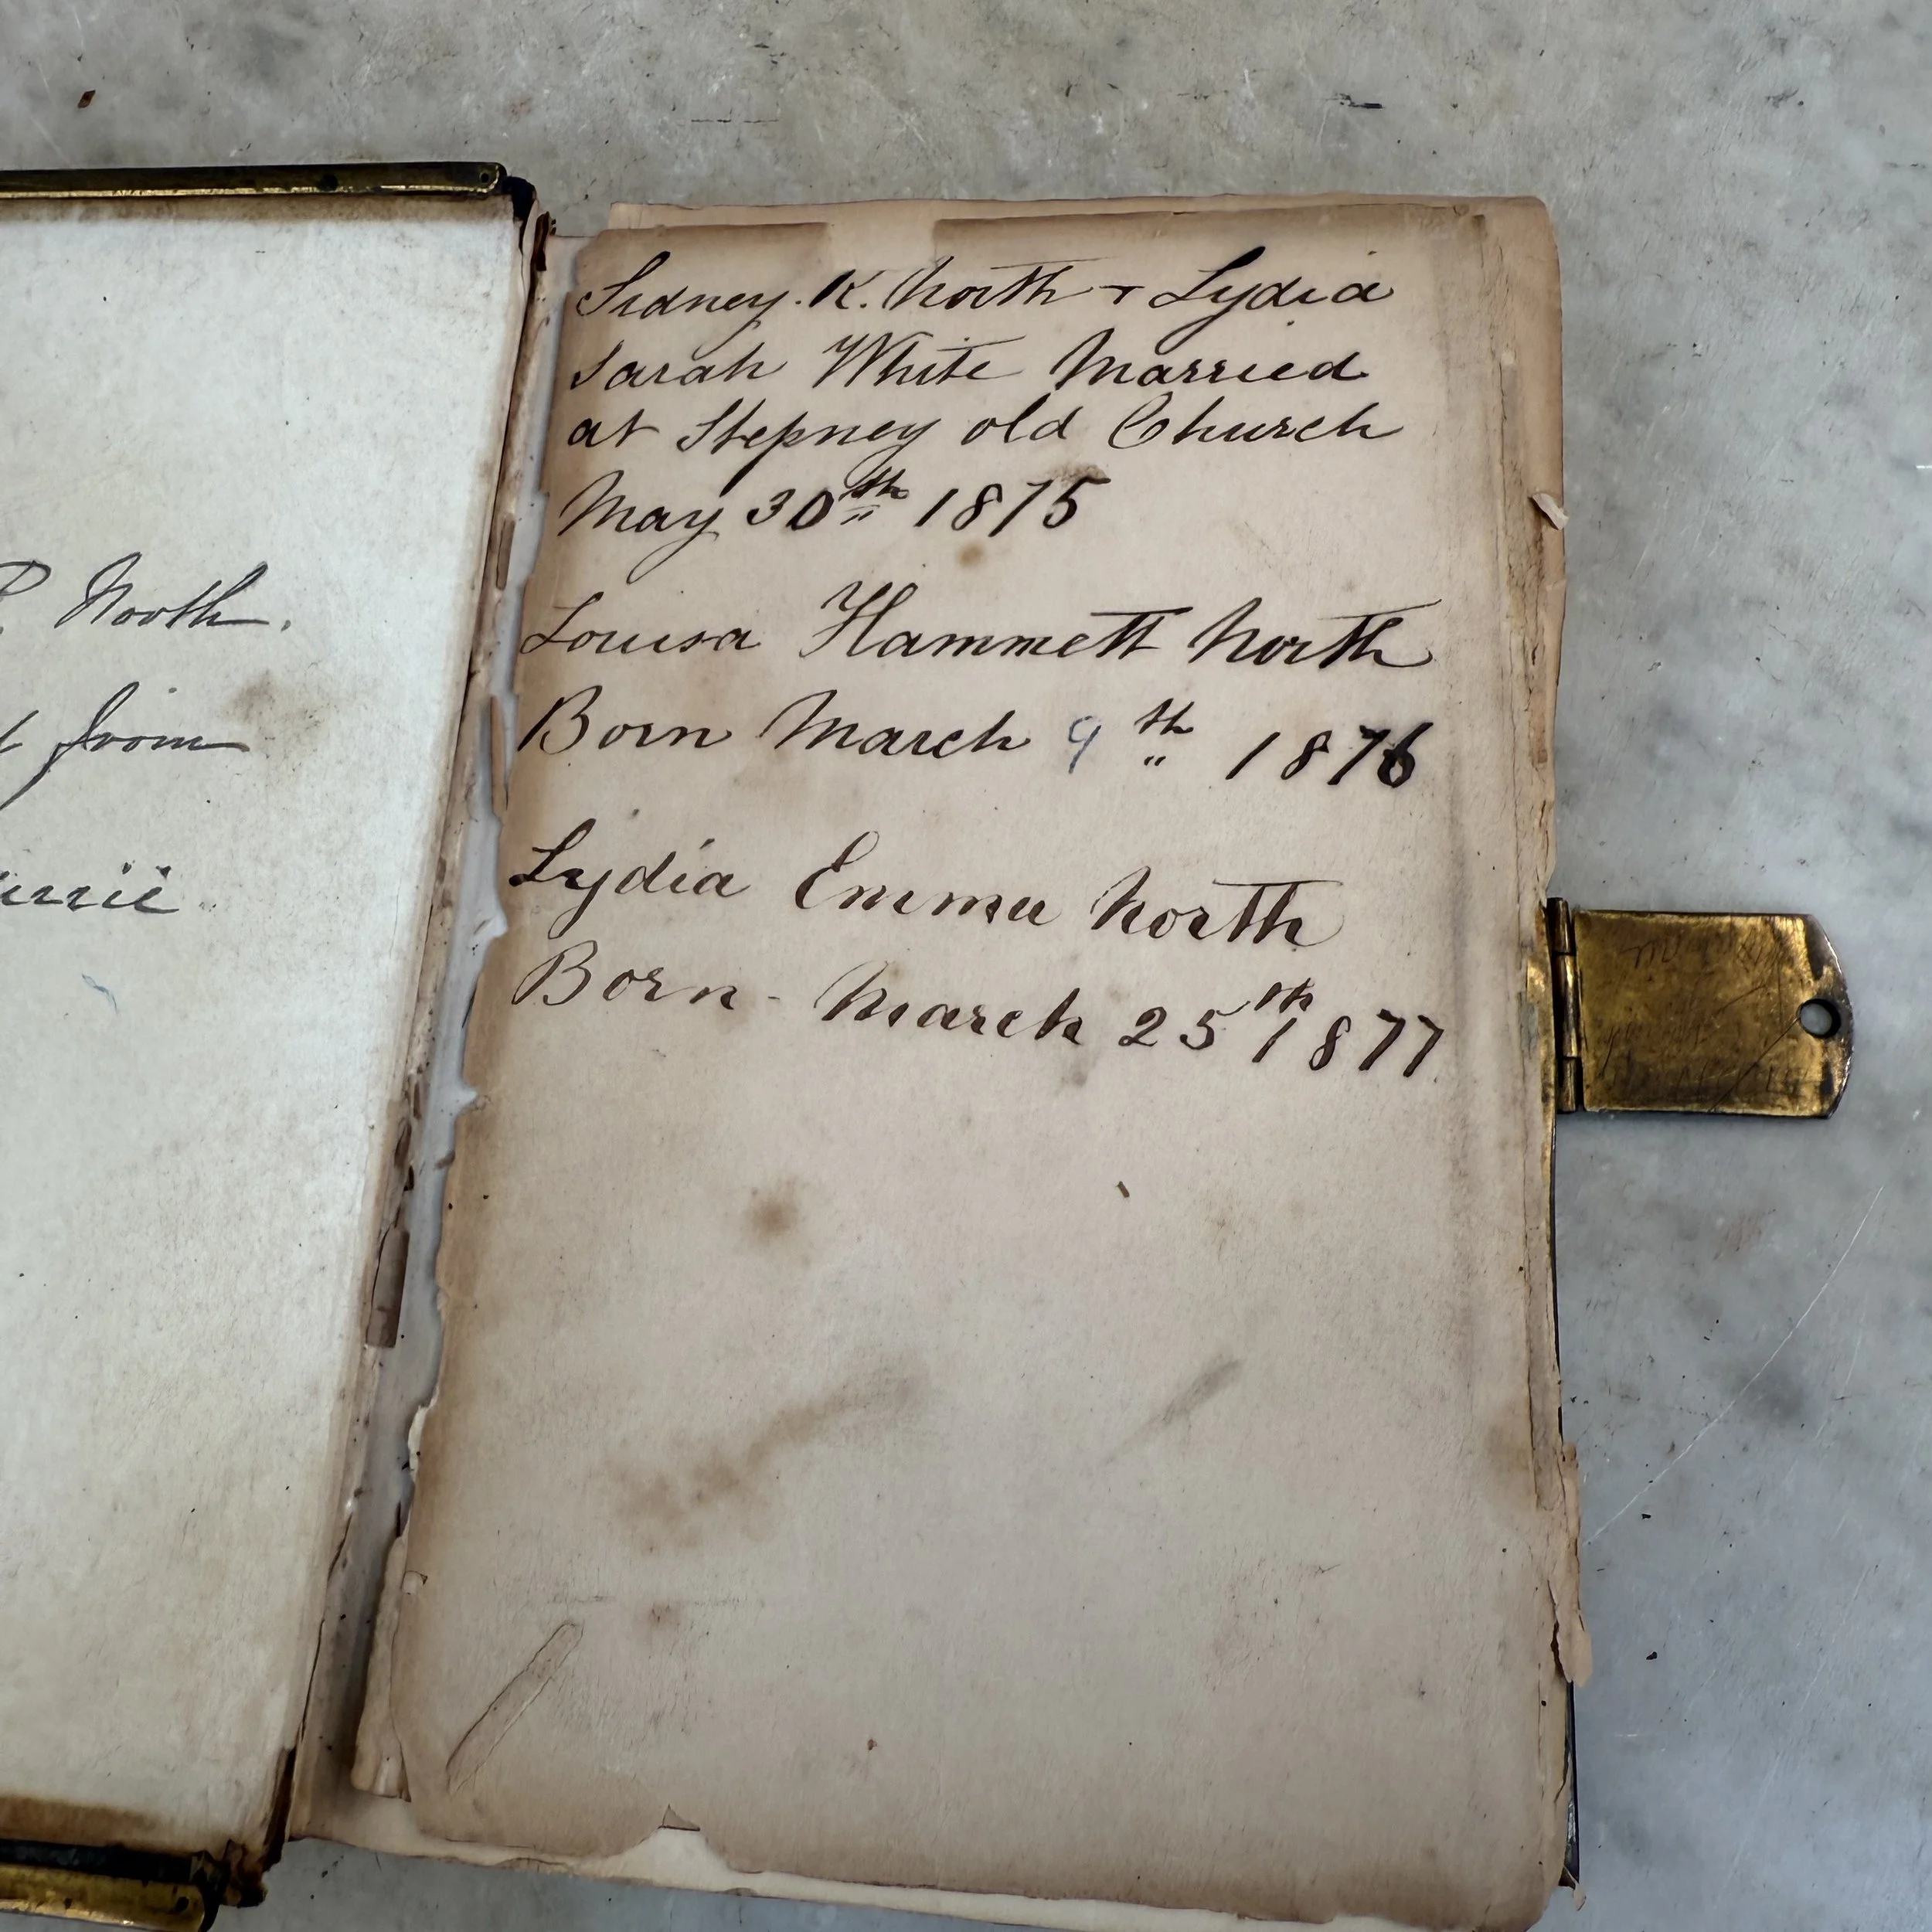 North.
from
Sidney. K. North + Lydia
Sarah White Married
at Stepney old Church
May 30th 1875
Louisa Hammett North
Born March 9th 1876
Lydia Emma North
Born - March 25th 1877